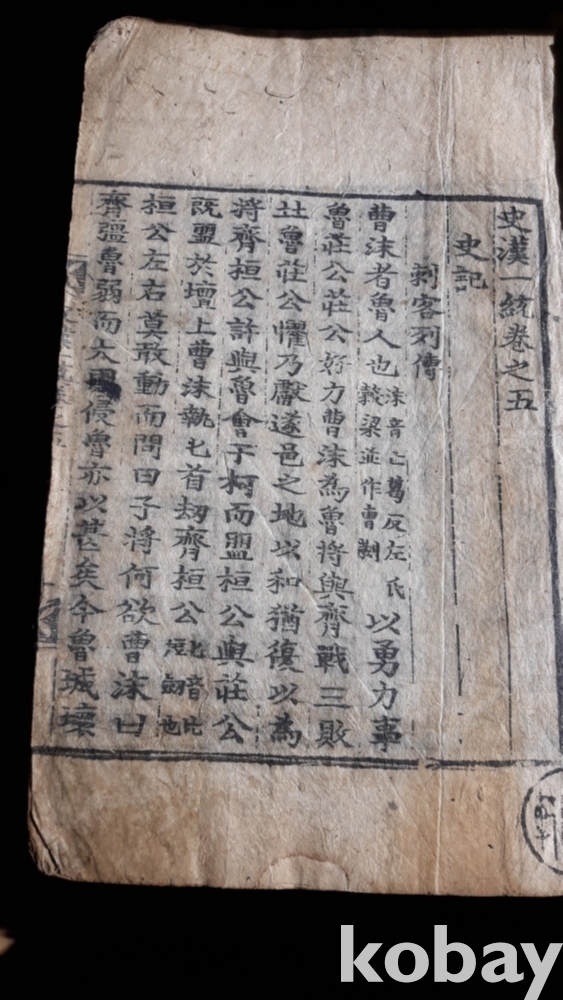 史漢一統卷之五
史記
刺客列傳
曹沫者魯人也 沫音亡葛反左氏 穀梁並作曹劌 以勇力事
魯莊公莊公好力曹沫為魯將與齊戰三敗
北魯莊公懼乃獻遂邑之地以和猶復以為
將齊桓公許與魯會于柯而盟桓公與莊公
既盟於壇上曹沫執匕首劫齊桓公 匕音比 短劒也
桓公左右莫敢動而問曰子將何欲曹沫曰
齊強魯弱而大國侵魯亦以甚矣今魯城壞
kobay